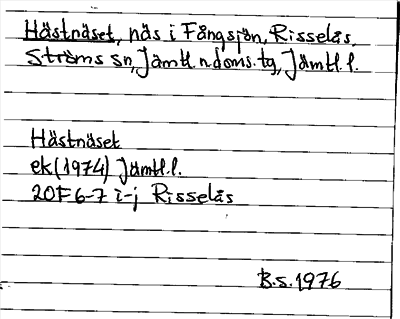 Hästnäset, näs i Fångsjön, Risselås,
Ströms sn, Jämtl. n. doms. tg, Jämtl. l.
Hästnäset
ek (1974) Jämtl. l.
20F 6-7 i-j Risselås
B.S. 1976